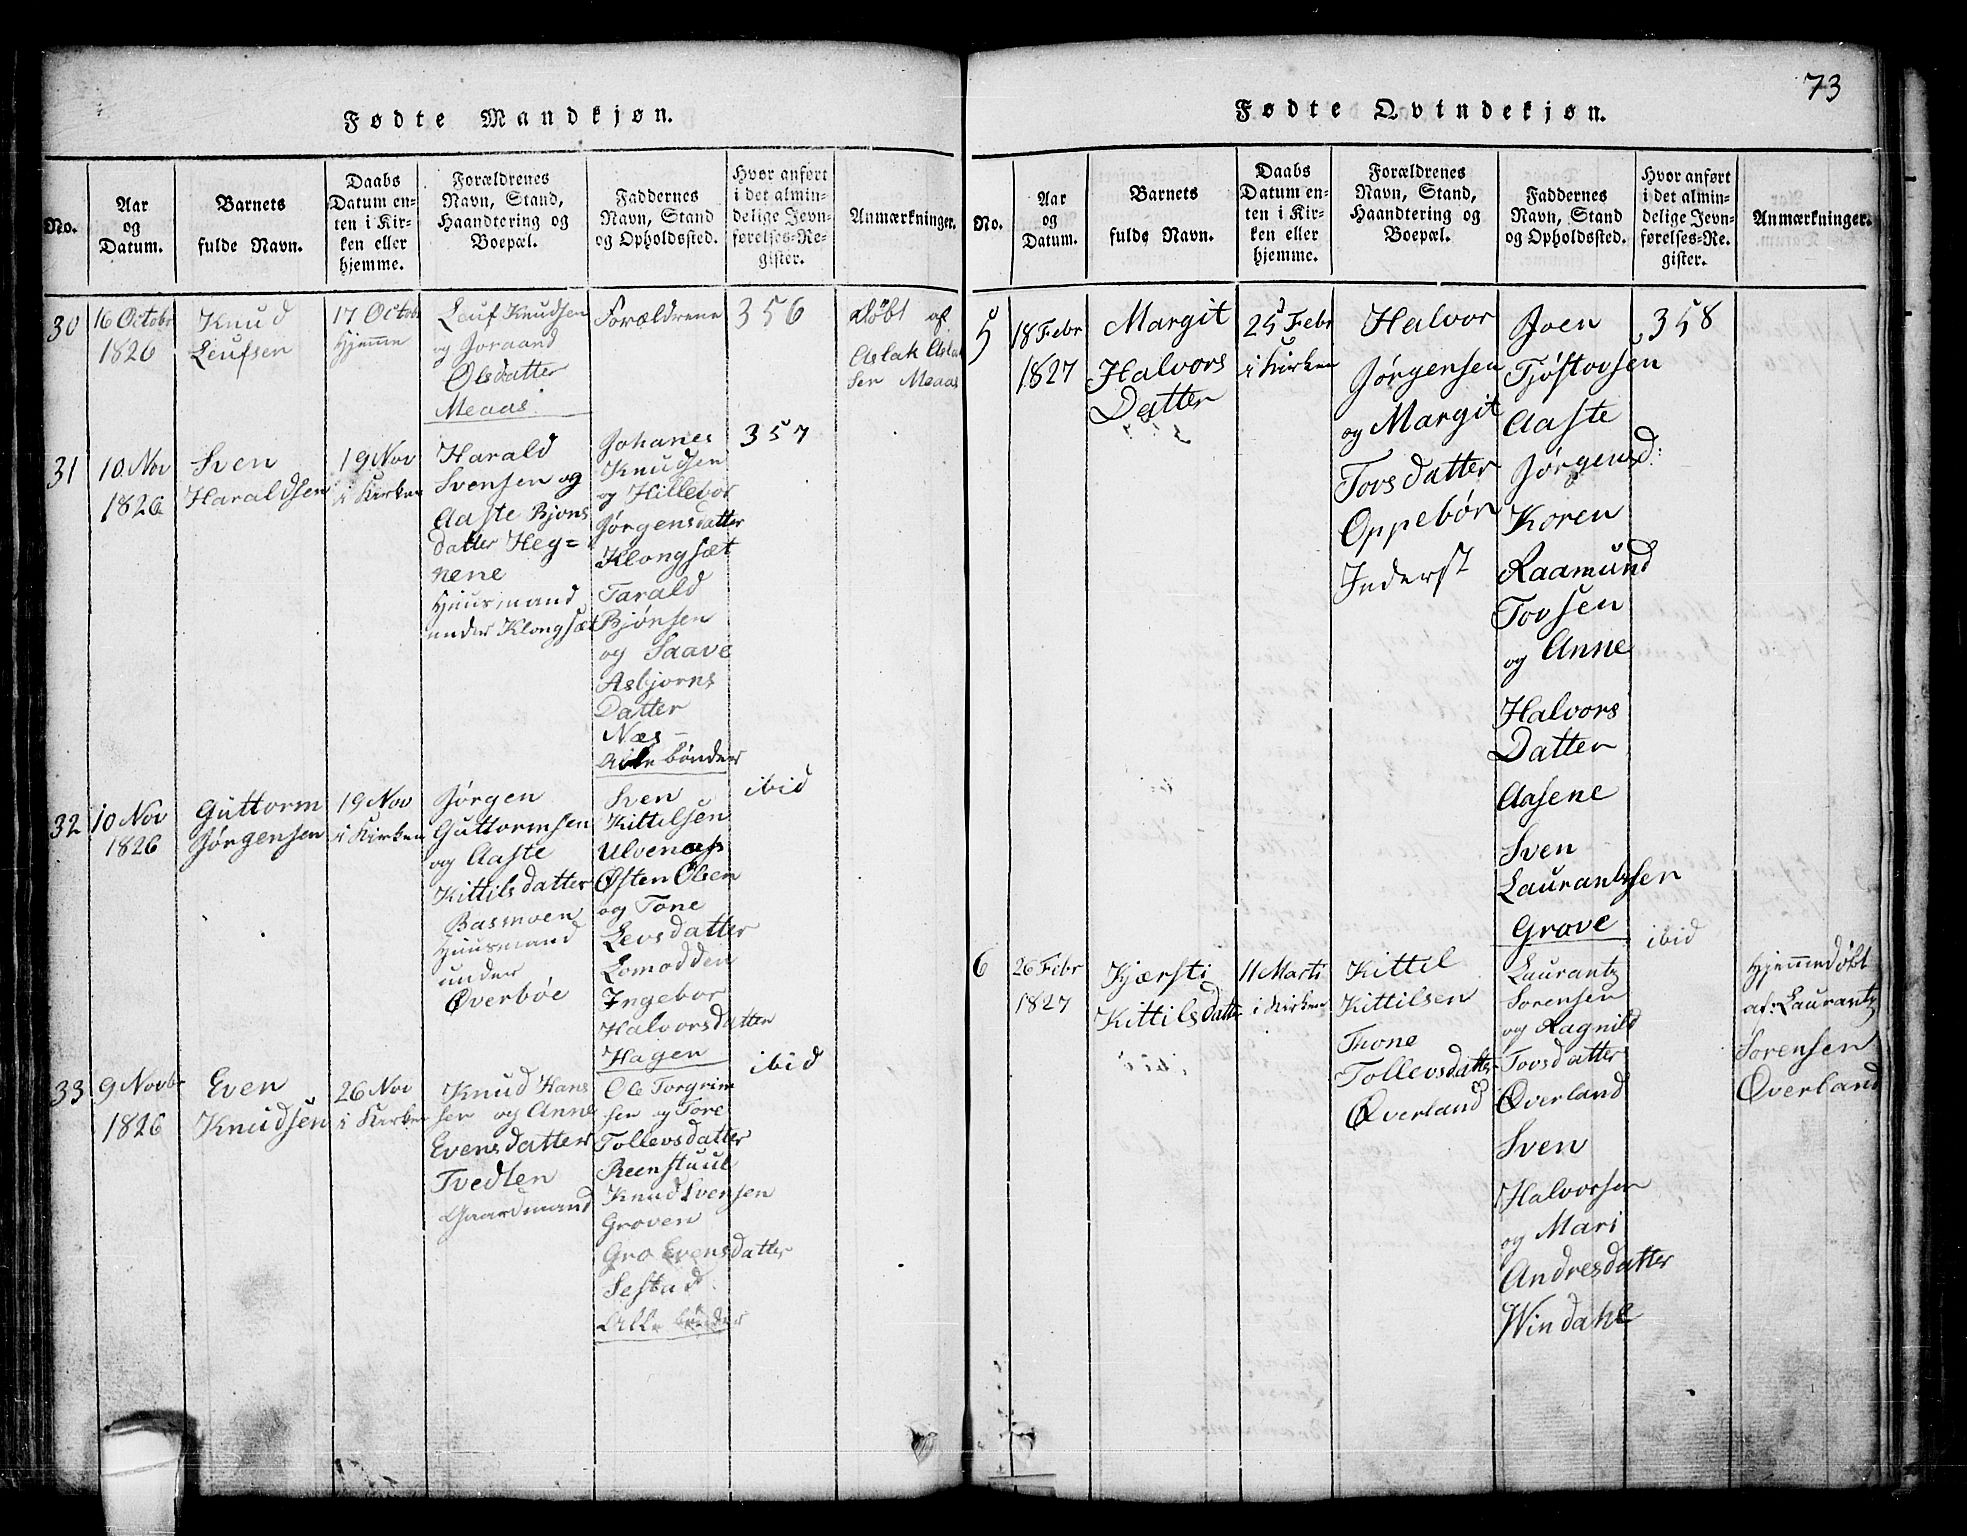 73
Fødte Mandkjøn.
No.
Aar
og
Datum.
Barnets
fulde Navn.
Daabs
Datum en-
ten i Kir-
ken eller
hjemme.
Forældrenes
Navn, Stand,
Haandtering og
Boepæl.
Faddernes
Navn, Stand
og Opholdssted.
Hvor anført
i det almin-
delige Jevn-
førelses-Re-
gister.
Anmærkninger.
30
16 Octobr
1826
Knud
Leufsen
17 Octob
Hjemme
Leuf Knudsen
og Joraand
Olsdatter
Meaas
Forældrene
356
døbt af
Aslak Aslak
sen Meaas
31
10 Nov
1826
Sven
Haraldsen
19 Nov
i Kirken
Harald
Svensen og
Aaste Bjons
datter Heg=
nene
Huusmand
under Klongsæt
Johanes
Knudsen
og Hillebor
Jørgensdatter
Klongsæt
Tarald
Bjønsen
og Saave
Asbjorns
Datter
Næs-
Alle bönder
357
32
10 Nov
1826
Guttorm
Jørgensen
19 Nov
i Kirken
Jørgen
Guttormsen
og Aaste
Kittilsdatter
Basmoen
Huusmand
under
Øverbøe
Sven
Kittilsen
Ulvenæs
Østen Olsen
og Tone
Levsdatter
Lomodden
Ingebor
Halvorsdatter
Hagen
ibid
33
9 Novbr
1826
Even
Knudsen
26 Nov
i Kirken
Knud Hans
sen og Anne
Evensdatter
Tvedten
Gaardmand
Ole Torgrim
sen og Tore
Tollevsdatter
Reenstuul
Knud Svensen
Groven
Gro Evensdatter
Sestad
Alle bönder
ibid
Fødte Qvindekjøn.
No.
Aar
og
Datum.
Barnets
fulde Navn.
Daabs
Datum en-
ten i Kir-
ken eller
hjemme.
Forældrenes
Navn, Stand,
Haandtering og
Boepæl.
Faddernes
Navn, Stand
og Opholdssted.
Hvor anført
i det almin-
delige Jevn-
førelses-Re-
gister.
Anmærkninger.
5
18 Febr
1827
Margit
Halvors
Datter
25 Febr
i Kirken
Halvor
Jørgensen
og Margit
Tovsdatter
Oppebøn
Inderst
Joen
Tjøstovsen
Aaste
Jørgensd:
Koren
Raamund
Tovsen
og Anne
Halvors
Datter
Aasene
Sven
Laurantzsen
Grove
358
6
26 Febr
1827
Kjærsti
Kittilsdatter
11 Marti
i Kirken
Kittil
Kittilsen
Thone
Tollevsdatter
Øverland
Laurantz
Sorensen
og Ragnild
Tovsdatter
Øverland
Sven
Halvorsen
og Mari
Andresdatter
Windahl
ibid
Hjemmedøbt
af: Laurantz
Sorensen
Øverland